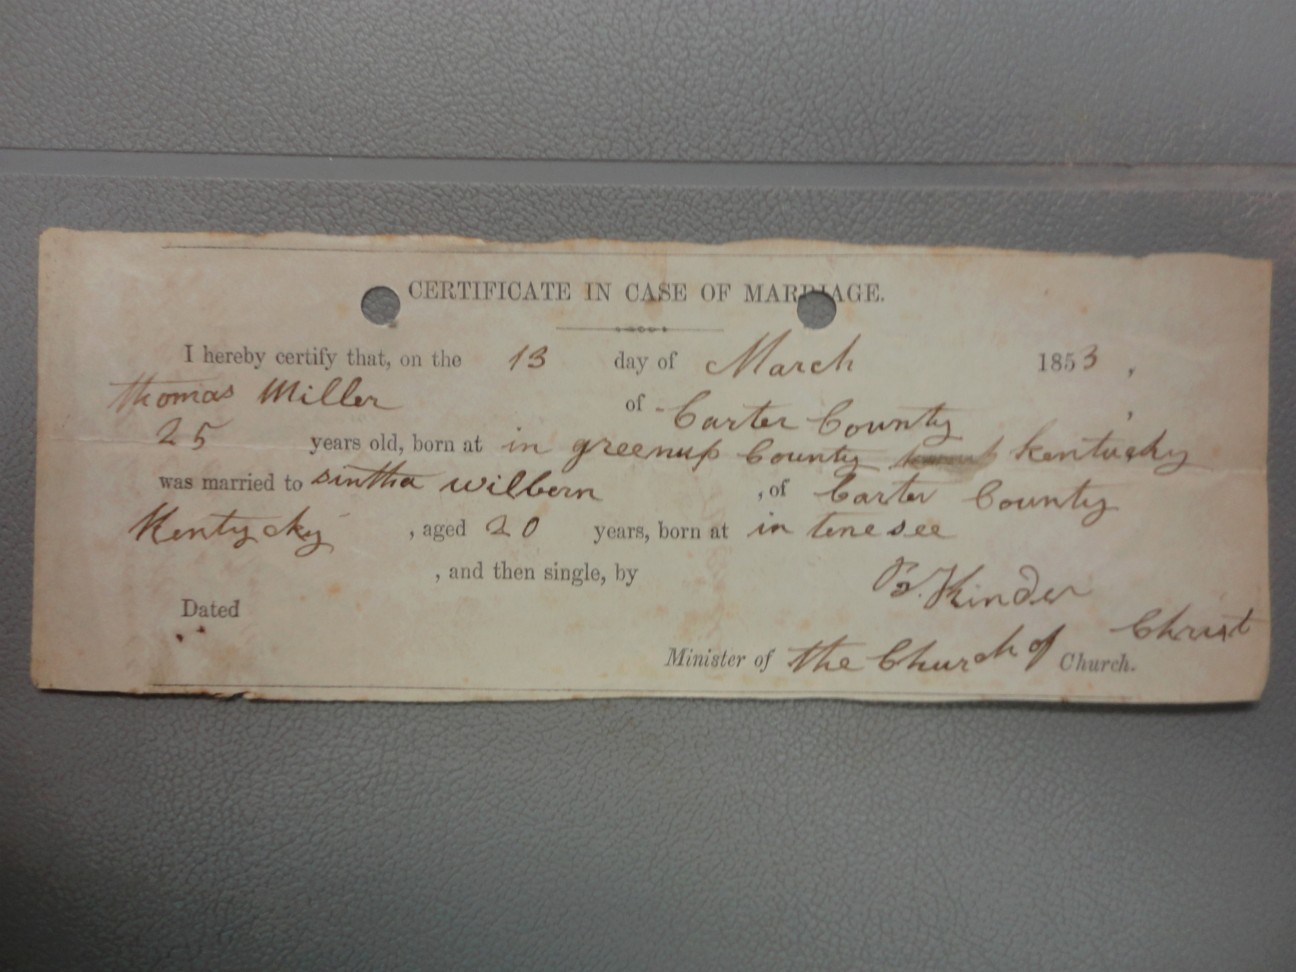 CERTIFICATE IN CASE OF MARRIAGE.
I hereby certify that, on the 13 day of March 1853,
thomas Miller of Carter County
25 years old, born at in greenup County kentucky
was married to sintha wilbern , of Carter County
Kentycky , aged 20 years, born at in tenesee
, and then single, by B. Kinder
Dated
Minister of the Church of Christ Church.